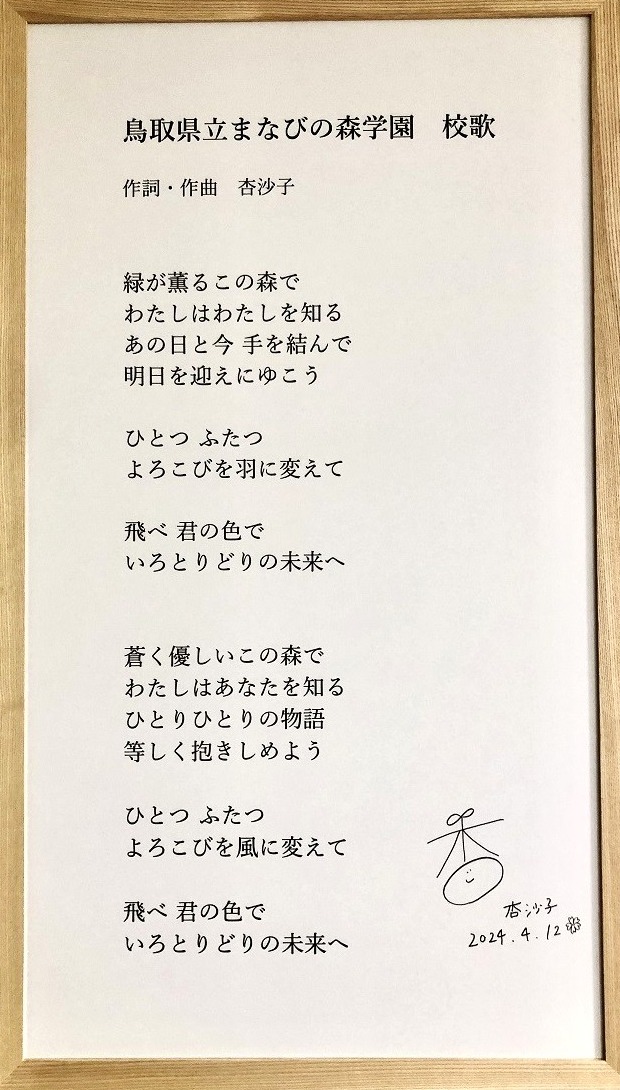 鳥取県立まなびの森学園　校歌
作詞・作曲　杏沙子
緑が薫るこの森で
わたしはわたしを知る
あの日と今 手を結んで
明日を迎えにゆこう
ひとつ ふたつ
よろこびを羽に変えて
飛べ 君の色で
いろとりどりの未来へ
蒼く優しいこの森で
わたしはあなたを知る
ひとりひとりの物語
等しく抱きしめよう
ひとつ ふたつ
よろこびを風に変えて
飛べ 君の色で
いろとりどりの未来へ
杏
杏沙子
2024.4.12